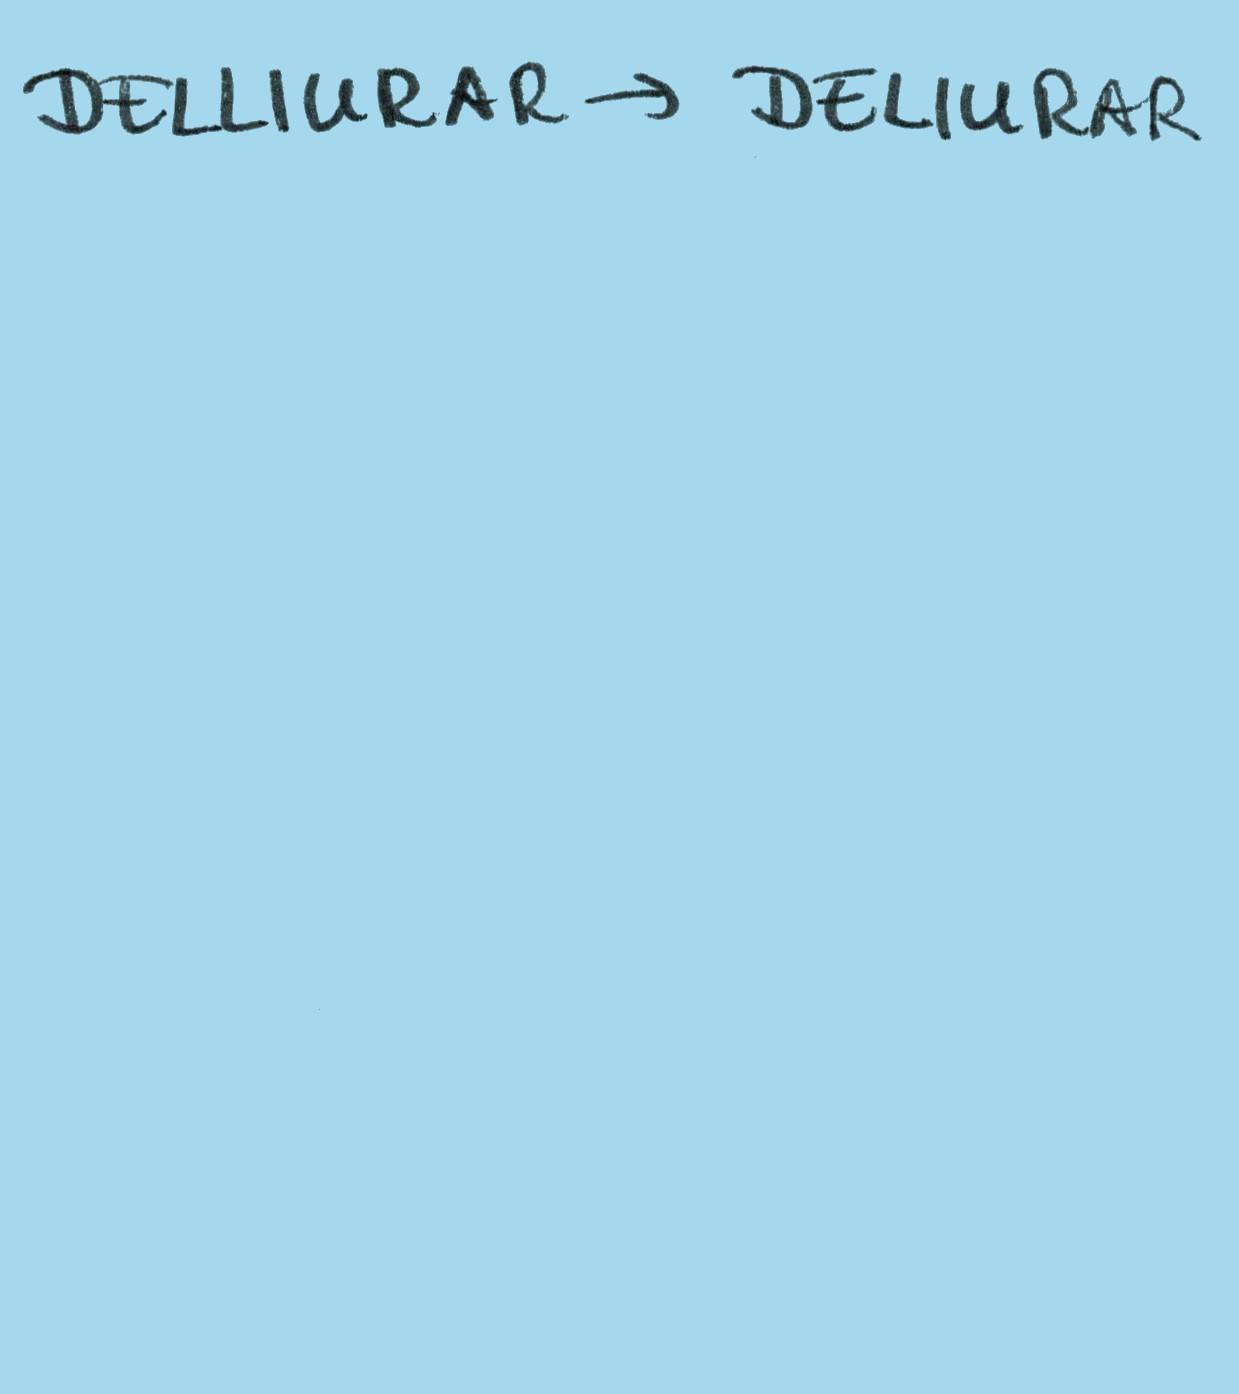 DELLIURAR → DELIURAR